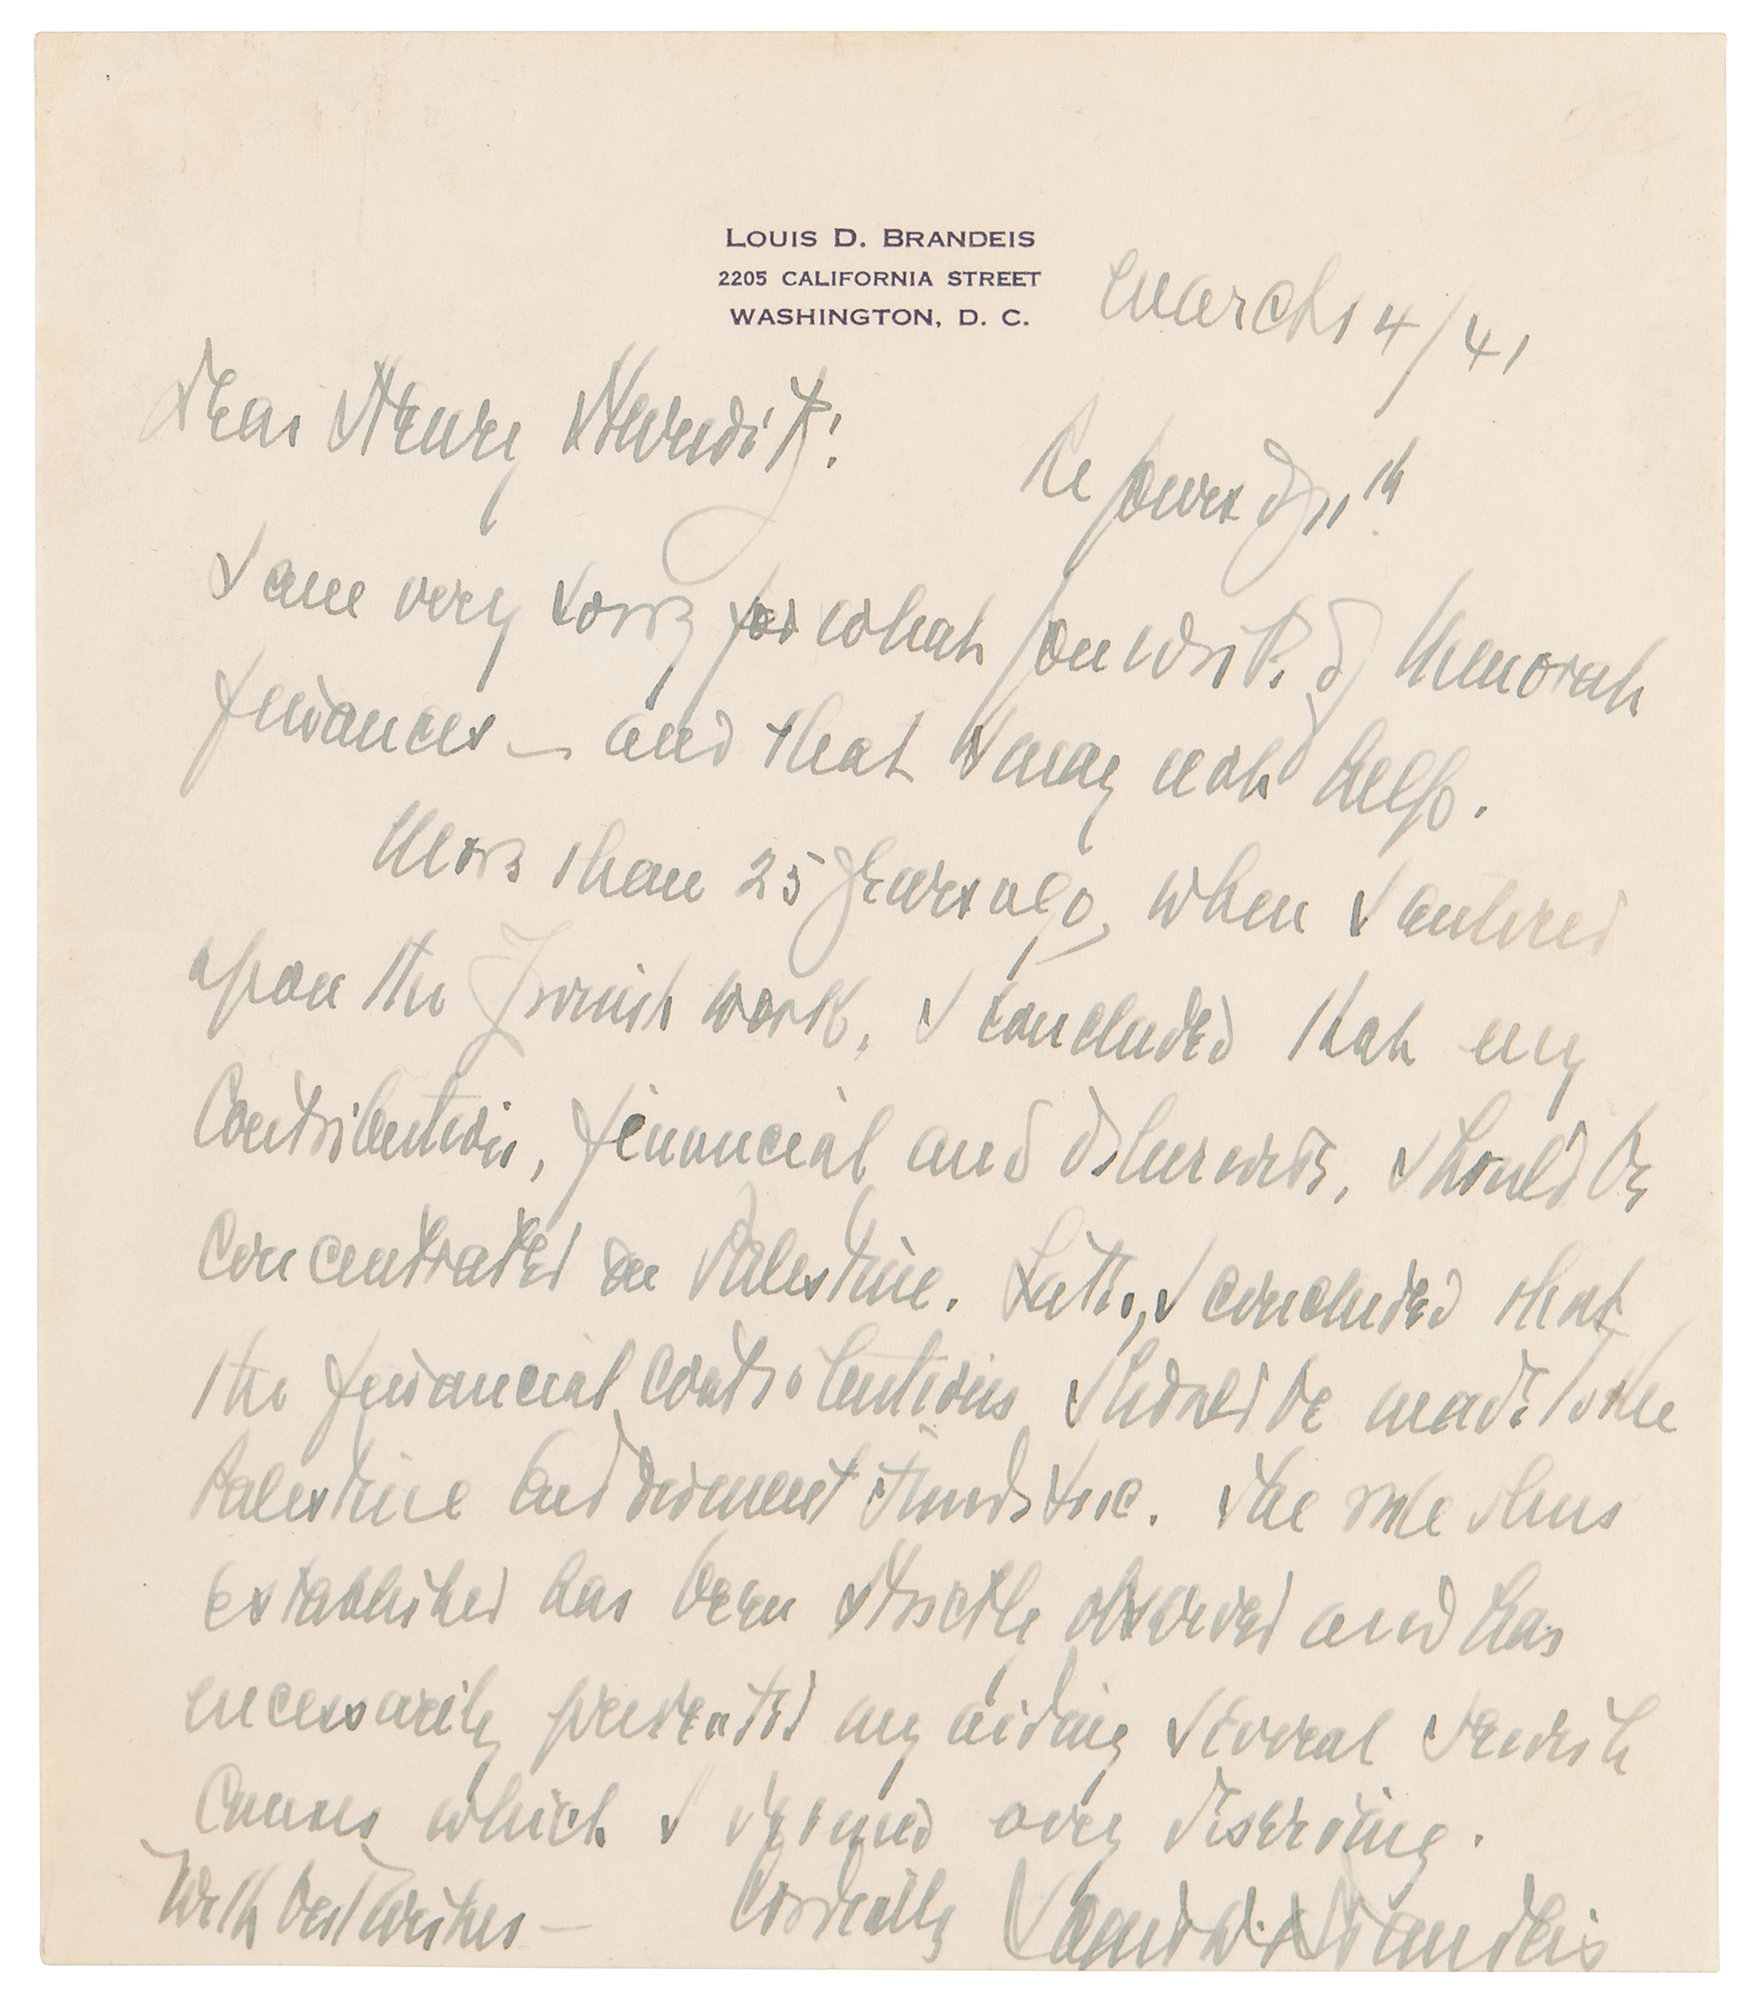 LOUIS D. BRANDEIS
2205 CALIFORNIA STREET
WASHINGTON, D. C.
March 14/41
Dear Henry Hurwitz:
Re yours of 11th
I am very sorry for what you write of Menorah
finances — and that I may not help.
More than 25 years ago, when I entered
upon the Jewish work, I concluded that my
contribution, financial and otherwise, should be
concentrated on Palestine. Later, I concluded that
the financial contributions should be made to the
Palestine Endowment Funds Inc. The rule thus
established has been strictly observed and has
necessarily prevented my aiding several Jewish
causes which I deemed very deserving.
With best wishes —
Cordially
Louis D. Brandeis